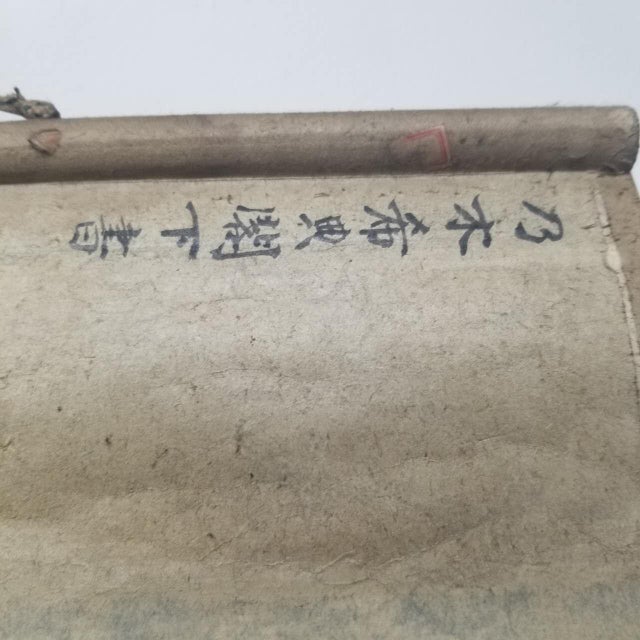 乃木希典閣下書